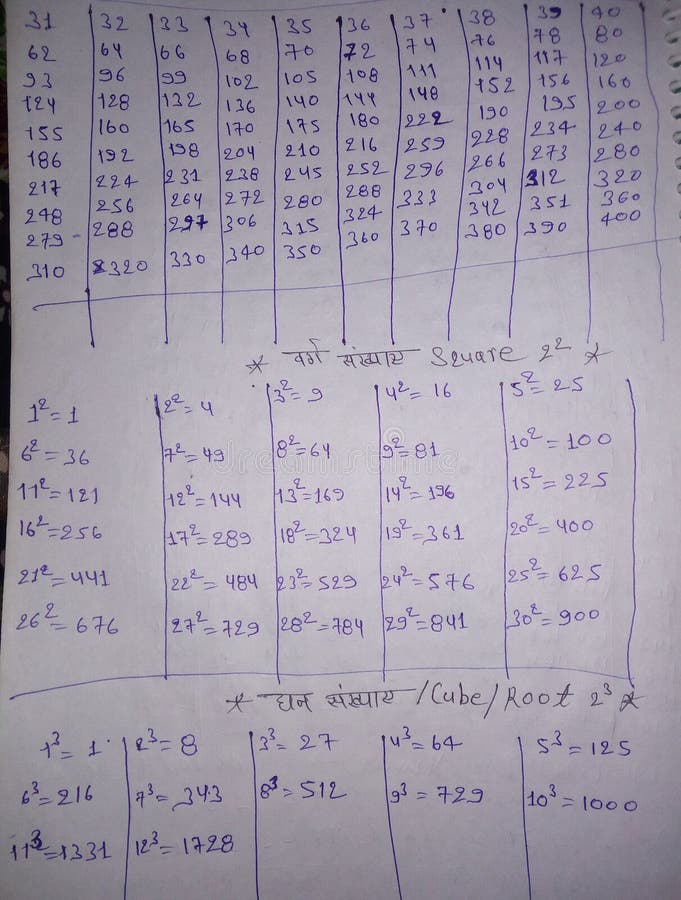 31 32 33 34 35 36 37 38 39 40
62 64 66 68 70 72 74 76 78 80
93 96 99 102 105 108 111 114 117 120
124 128 132 136 140 144 148 152 156 160
155 160 165 170 175 180 222 190 195 200
186 192 198 204 210 216 259 228 234 240
217 224 231 238 245 252 296 266 273 280
248 256 264 272 280 288 333 304 312 320
279 288 297 306 315 324 370 342 351 360
310 320 330 340 350 360 380 390 400
* वर्ग संख्याए Square 2² *
1²=1 2²=4 3²=9 4²=16 5²=25
6²=36 7²=49 8²=64 9²=81 10²=100
11²=121 12²=144 13²=169 14²=196 15²=225
16²=256 17²=289 18²=324 19²=361 20²=400
21²=441 22²=484 23²=529 24²=576 25²=625
26²=676 27²=729 28²=784 29²=841 30²=900
* घन संख्याए /Cube/Root 2³ *
1³=1 2³=8 3³=27 4³=64 5³=125
6³=216 7³=343 8³=512 9³=729 10³=1000
11³=1331 12³=1728
dreamstime